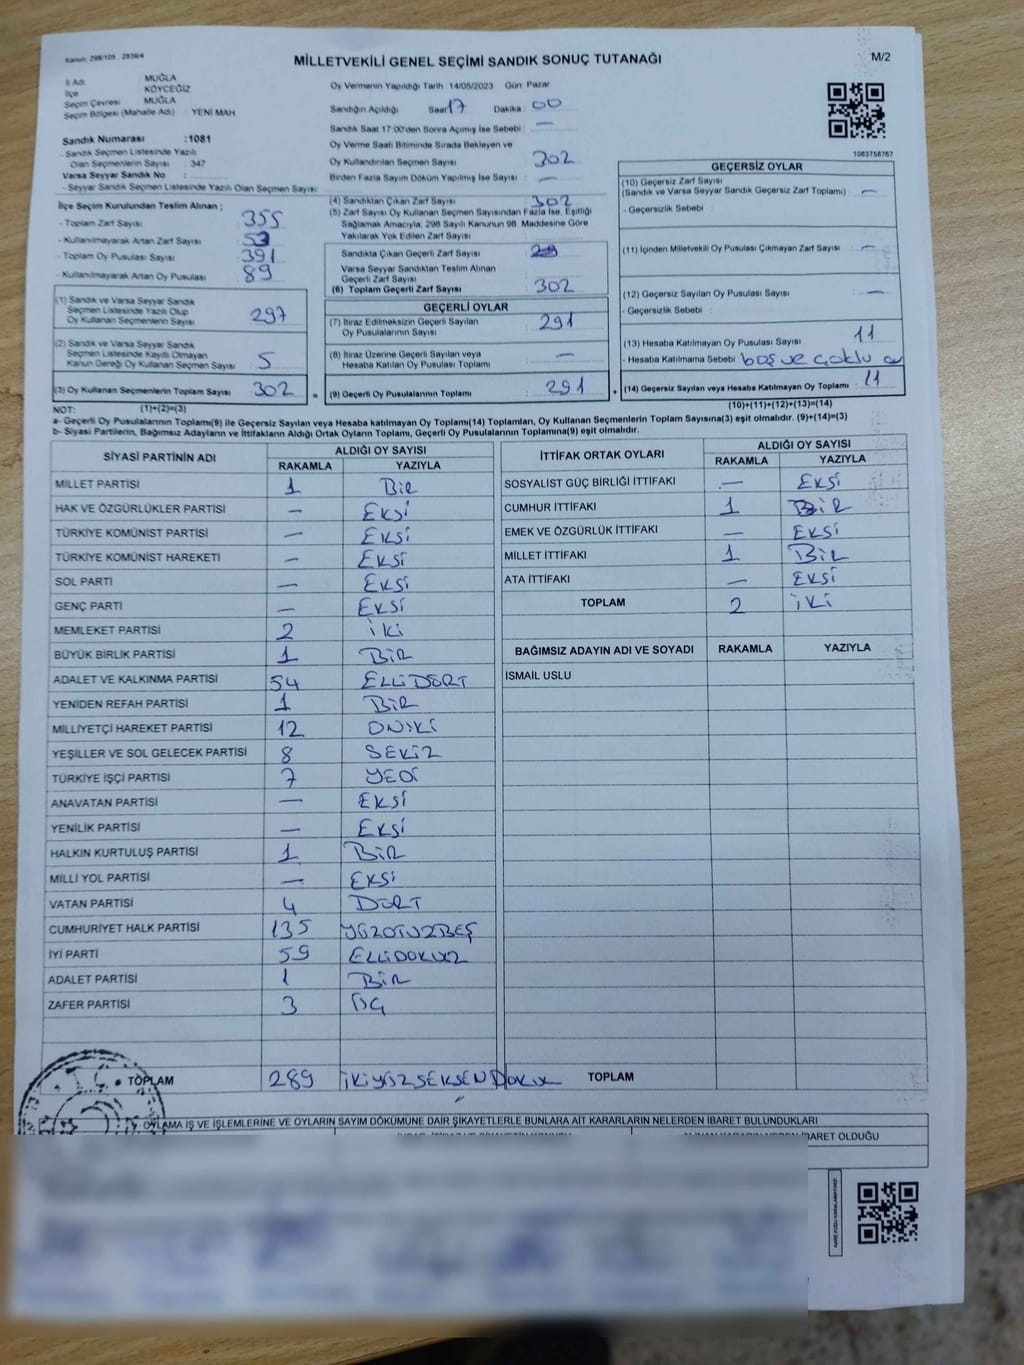 Kanun: 298/105 , 2839/4
MİLLETVEKİLİ GENEL SEÇİMİ SANDIK SONUÇ TUTANAĞI
M/2
İl Adı MUĞLA
İlçe KÖYCEĞİZ
Seçim Çevresi MUĞLA
Seçim Bölgesi (Mahalle Adı) : YENİ MAH
Sandık Numarası :1081
- Sandık Seçmen Listesinde Yazılı
Olan Seçmenlerin Sayısı : 347
Varsa Seyyar Sandık No :
- Seyyar Sandık Seçmen Listesinde Yazılı Olan Seçmen Sayısı :
İlçe Seçim Kurulundan Teslim Alınan ;
- Toplam Zarf Sayısı : 355
- Kullanılmayarak Artan Zarf Sayısı : 53
- Toplam Oy Pusulası Sayısı : 391
- Kullanılmayarak Artan Oy Pusulası : 89
(1) Sandık ve Varsa Seyyar Sandık
Seçmen Listesinde Yazılı Olup
Oy Kullanan Seçmenlerin Sayısı : 297
(2) Sandık ve Varsa Seyyar Sandık
Seçmen Listesinde Kayıtlı Olmayan
Kanun Gereği Oy Kullanan Seçmen Sayısı : 5
(3) Oy Kullanan Seçmenlerin Toplam Sayısı : 302
Oy Vermenin Yapıldığı Tarih :14/05/2023 Gün: Pazar
Sandığın Açıldığı Saat : 17 Dakika : 00
Sandık Saat 17:00'den Sonra Açılmış İse Sebebi : —
Oy Verme Saati Bitiminde Sırada Bekleyen ve
Oy Kullandırılan Seçmen Sayısı : 302
Birden Fazla Sayım Döküm Yapılmış İse Sayısı : —
(4) Sandıktan Çıkan Zarf Sayısı : 302
(5) Zarf Sayısı Oy Kullanan Seçmen Sayısından Fazla İse, Eşitliği
Sağlamak Amacıyla, 298 Sayılı Kanunun 98. Maddesine Göre
Yakılarak Yok Edilen Zarf Sayısı :
Sandıkta Çıkan Geçerli Zarf Sayısı :
Varsa Seyyar Sandıktan Teslim Alınan
Geçerli Zarf Sayısı :
(6) Toplam Geçerli Zarf Sayısı : 302
GEÇERLİ OYLAR
(7) İtiraz Edilmeksizin Geçerli Sayılan
Oy Pusulalarının Sayısı : 291
(8) İtiraz Üzerine Geçerli Sayılan veya
Hesaba Katılan Oy Pusulası Toplamı : —
= (9) Geçerli Oy Pusulalarının Toplamı : 291 +
1083758767
GEÇERSİZ OYLAR
(10) Geçersiz Zarf Sayısı
(Sandık ve Varsa Seyyar Sandık Geçersiz Zarf Toplamı) : —
- Geçersizlik Sebebi :
(11) İçinden Milletvekili Oy Pusulası Çıkmayan Zarf Sayısı : —
(12) Geçersiz Sayılan Oy Pusulası Sayısı : —
- Geçersizlik Sebebi :
(13) Hesaba Katılmayan Oy Pusulası Sayısı : 11
- Hesaba Katılmama Sebebi : boş ve çoklu oy
(14) Geçersiz Sayılan veya Hesaba Katılmayan Oy Toplamı : 11
NOT: (1)+(2)=(3)
(10)+(11)+(12)+(13)=(14)
a- Geçerli Oy Pusulaların Toplamı(9) ile Geçersiz Sayılan veya Hesaba katılmayan Oy Toplamı(14) Toplamları, Oy Kullanan Seçmenlerin Toplam Sayısına(3) eşit olmalıdır. (9)+(14)=(3)
b- Siyasi Partilerin, Bağımsız Adayların ve İttifakların Aldığı Ortak Oyların Toplamı, Geçerli Oy Pusulalarının Toplamına(9) eşit olmalıdır.
SİYASİ PARTİNİN ADI ALDIĞI OY SAYISI
RAKAMLA YAZIYLA
MİLLET PARTİSİ 1 BİR
HAK VE ÖZGÜRLÜKLER PARTİSİ — EKSİ
TÜRKİYE KOMÜNİST PARTİSİ — EKSİ
TÜRKİYE KOMÜNİST HAREKETİ — EKSİ
SOL PARTİ — EKSİ
GENÇ PARTİ — EKSİ
MEMLEKET PARTİSİ 2 İKİ
BÜYÜK BİRLİK PARTİSİ 1 BİR
ADALET VE KALKINMA PARTİSİ 54 ELLİDÖRT
YENİDEN REFAH PARTİSİ 1 BİR
MİLLİYETÇİ HAREKET PARTİSİ 12 ONİKİ
YEŞİLLER VE SOL GELECEK PARTİSİ 8 SEKİZ
TÜRKİYE İŞÇİ PARTİSİ 7 YEDİ
ANAVATAN PARTİSİ — EKSİ
YENİLİK PARTİSİ — EKSİ
HALKIN KURTULUŞ PARTİSİ 1 BİR
MİLLİ YOL PARTİSİ — EKSİ
VATAN PARTİSİ 4 DÖRT
CUMHURİYET HALK PARTİSİ 135 YÜZOTUZBEŞ
İYİ PARTİ 59 ELLİDOKUZ
ADALET PARTİSİ 1 BİR
ZAFER PARTİSİ 3 ÜÇ
TOPLAM 289 İKİYÜZSEKSENDOKUZ
İTTİFAK ORTAK OYLARI ALDIĞI OY SAYISI
RAKAMLA YAZIYLA
SOSYALİST GÜÇ BİRLİĞİ İTTİFAKI — EKSİ
CUMHUR İTTİFAKI 1 BİR
EMEK VE ÖZGÜRLÜK İTTİFAKI — EKSİ
MİLLET İTTİFAKI 1 BİR
ATA İTTİFAKI — EKSİ
TOPLAM 2 İKİ
BAĞIMSIZ ADAYIN ADI VE SOYADI RAKAMLA YAZIYLA
İSMAİL USLU
TOPLAM
OYLAMA İŞ VE İŞLEMLERİNE VE OYLARIN SAYIM DÖKÜMÜNE DAİR ŞİKAYETLERLE BUNLARA AİT KARARLARIN NELERDEN İBARET BULUNDUKLARI
İBARET OLDUĞU